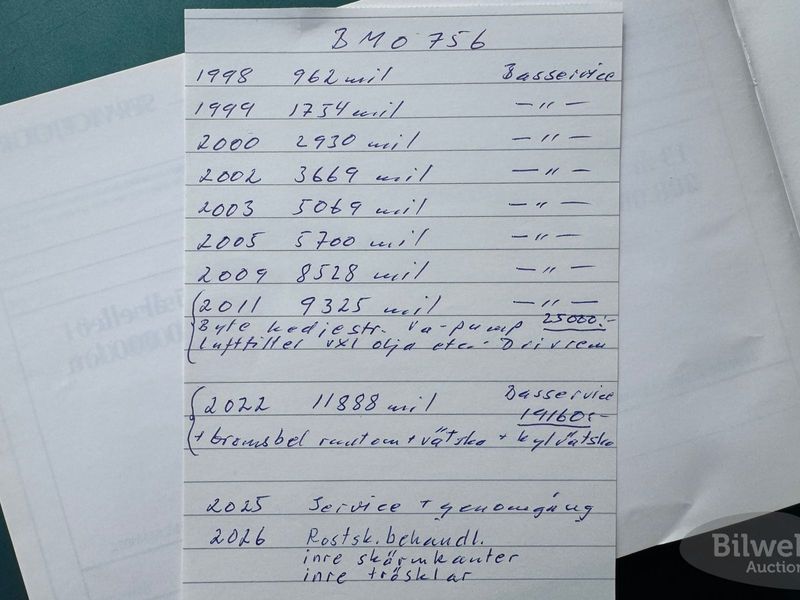 BMO 756
1998 962 mil Basservice
1999 1734 mil — " —
2000 2930 mil — " —
2002 3669 mil — " —
2003 5069 mil — " —
2005 5700 mil — " —
2009 8528 mil — " —
2011 9325 mil — " —
Byte kedjestr. va-pump 25000:-
Luftfilter vxl olja etc - Drivrem
2022 11888 mil Basservice
19160:-
+ bromsbel runtom + vätska + kylvätska
2025 Service + genomgång
2026 Rostsk. behandl.
inre skärmkanter
inre trösklar
Auction